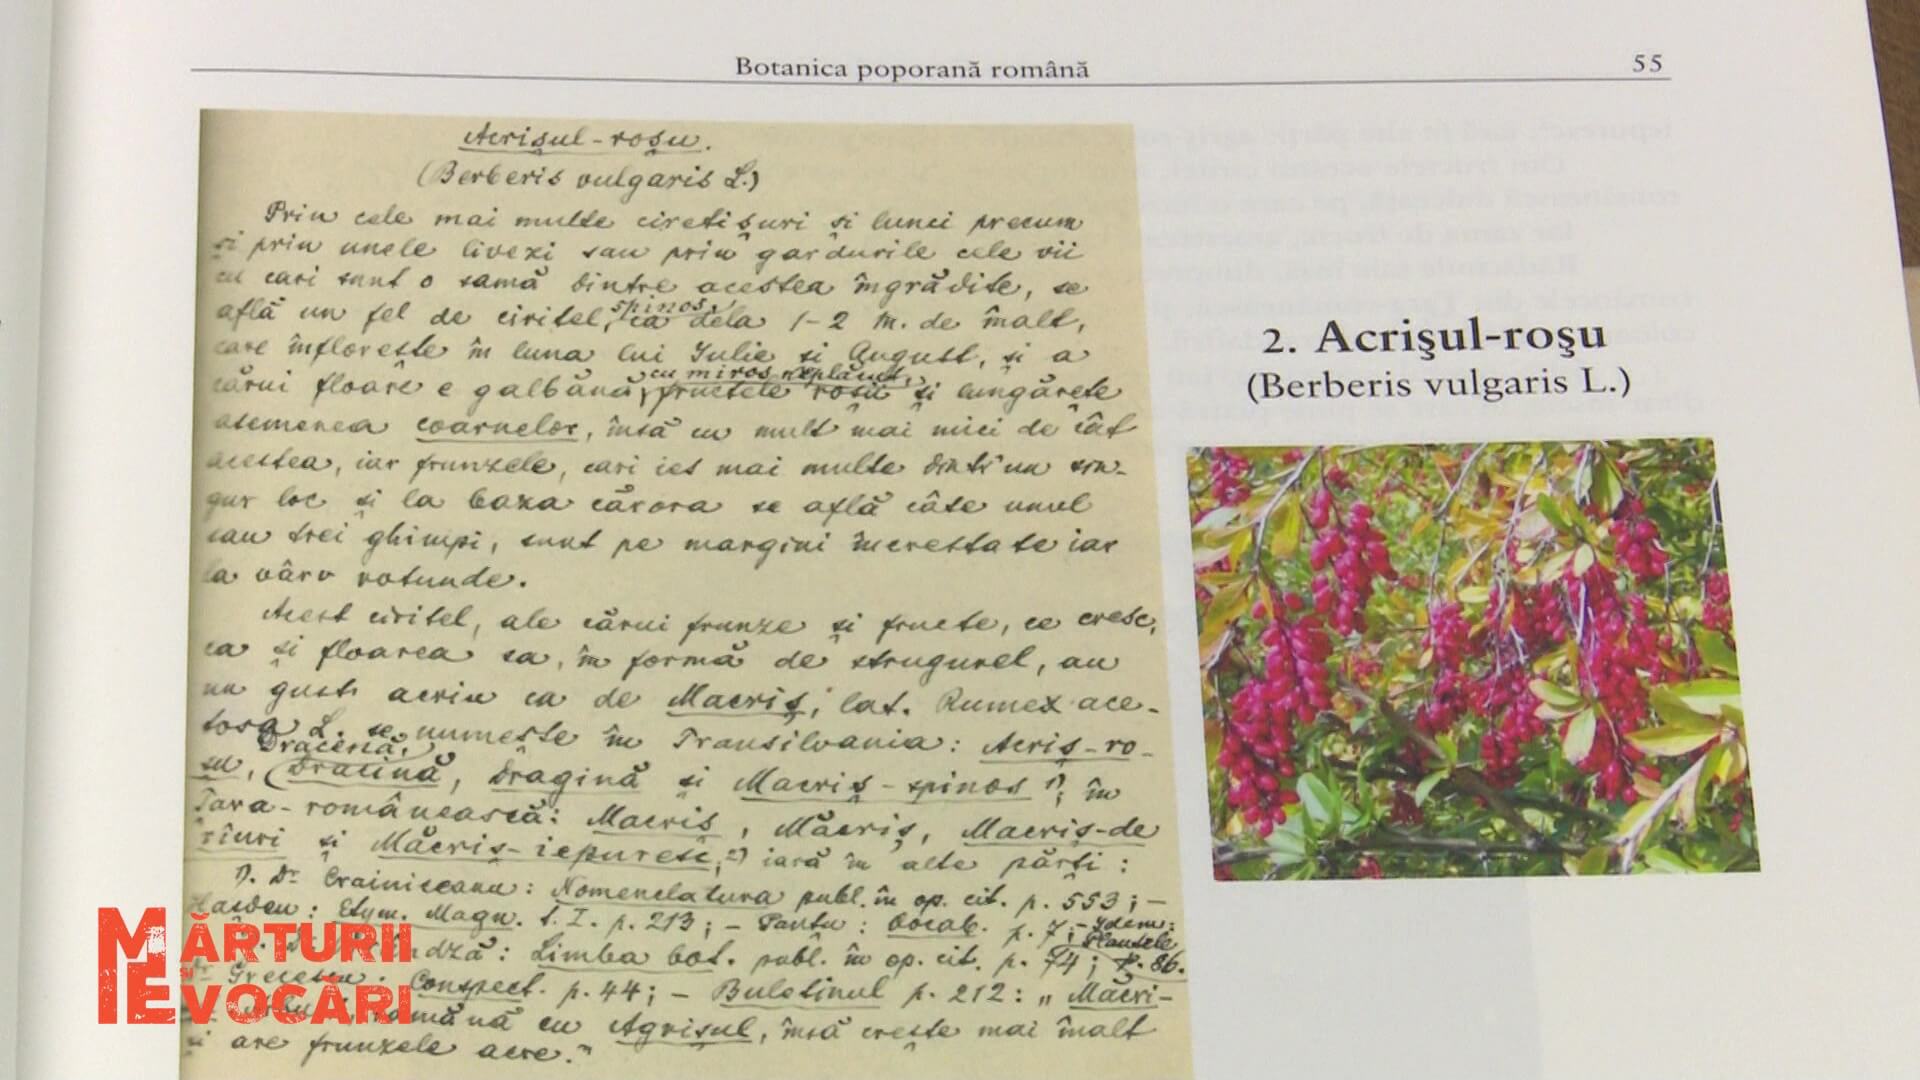 Botanica poporană română
55
Acrișul-roșu.
(Berberis vulgaris L.)
Prin cele mai multe ciretișuri și lunci precum
și prin unele livezi sau prin gardurile cele vii
cu cari sunt o samă dintre acestea îngrădite, se
află un fel de ciritel, spinos, ca dela 1-2 m. de înalt,
care înflorește în luna lui Iulie și August, și a
cărui floare e galbănă, cu miros neplăcut, fructele roșii și lungărețe
asemenea coarnelor, însă cu mult mai mici de cât
acestea, iar frunzele, cari ies mai multe dintr'un sin-
gur loc și la baza cărora se află câte unul
sau trei ghimpi, sunt pe margini încrestate iar
la vârv rotunde.
Acest ciritel, ale cărui frunze și fructe, ce cresc,
ca și floarea sa, în formă de strugurel, au
un gust acriu ca de Macriș, lat. Rumex ace-
tosa L. se numește în Transilvania: Acriș-ro-
șu, Dracenă, (Dracină, Dragină și Macriș-spinos 1); în
Țara-românească: Macriș, Măcriș, Macriș-de
rîuri și Măcriș-iepuresc, 2) iară în alte părți:
1). Dr Crainiceanu: Nomenclatura publ. în op. cit. p. 553; —
Hasdeu: Etym. Magn. t. I. p. 213; — Panțu: Vocab. p. 7; — Idem: Plantele p. 86.
Limba bot. publ. în op. cit. p. 74;
Dr Grecescu: Conspect. p. 44; — Buletinul p. 212: „Măcri-
mănă cu Agrișul, însă crește mai înalt
și are frunzele acre."
2. Acrișul-roșu
(Berberis vulgaris L.)
MĂRTURII
ȘI
EVOCĂRI